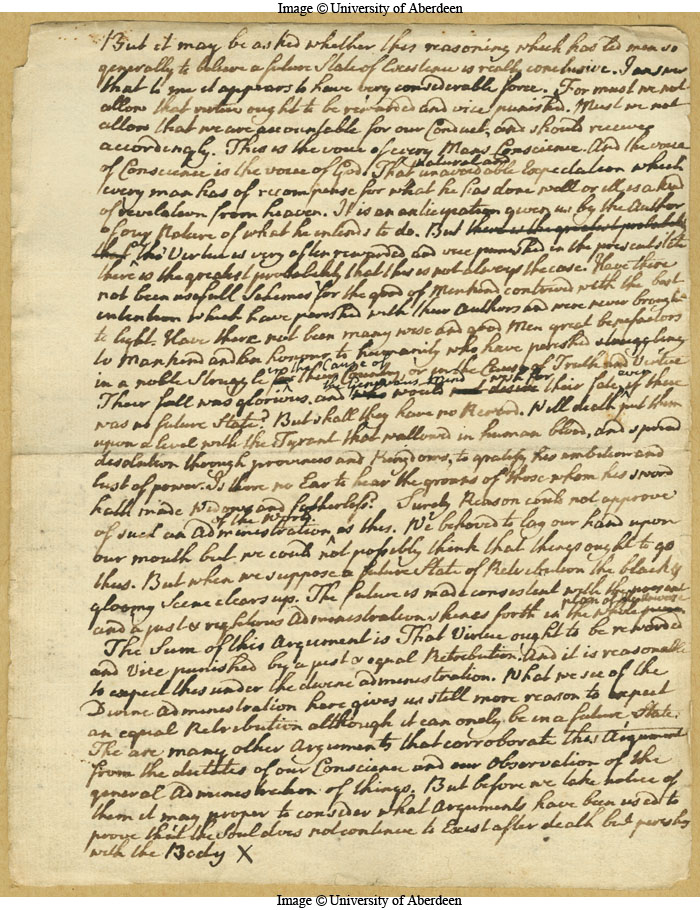 Image © University of Aberdeen
But it may be asked whether this reasoning which has led men so
generally to believe a future State of Existence is really conclusive. I answer
that to me it appears to have very considerable force. For must we not
allow that virtue ought to be rewarded and vice punished. Must we not
allow that we are accountable for our Conduct, and should receive
accordingly. This is the voice of every Mans Conscience. And the voice
of Conscience is the voice of God. That natural and unavoidable Expectation which
every man has of recompense for what he has done well or ill, is a kind
of revelation from heaven. It is an anticipation given us by the Author
of our Nature of what he intends to do. But there is the greatest probability
that tho' Virtue is very often rewarded and vice punished in the present state
there is the greatest probability that this is not always the case. Have there
not been usefull Schemes for the good of Mankind contrived with the best
intention which have perished with their Authors and were never brought
to light. Have there not been many wise and good Men great benefactors
to Mankind and an honour to humanity who have perished struggling
in a noble Struggle in the Cause of their Country, or in the Cause of Truth and Virtue
Their fall was glorious. and the generous mind would wish for their fate if there
was no future State. But shall they have no Reward. Will death put them
upon a level with the Tyrant that wallowed in human blood, and spread
desolation through provinces and Kingdoms, to gratify his ambition and
lust of power. Is there no Ear to hear the groans of those whom his sword
hath made Widows and fatherless? Surely Reason could not approve
of such an Administration of the World as this. We behoved to lay our hand upon
our mouth but we could not possibly think that things ought to go
thus. But when we suppose a future State of Retribution the black &
gloomy Scene clears up. The future is made consistent with the present
and a just & righteous Administration shines forth in the whole
The Sum of this Argument is That Virtue ought to be rewarded
and Vice punished by a just & equal Retribution. And it is reasonable
to expect this under the divine administration. What we see of the
Divine Administration here gives us still more reason to expect
an equal Retribution although it can onely be in a future State.
The are many other Arguments that corroborate this Argument
from the dictates of our Conscience and our Observation of the
general Administration of things. But before we take notice of
them it may proper to consider what Arguments have been used to
prove that the Soul does not continue to Exist after death but perishes
with the Body X
Image © University of Aberdeen